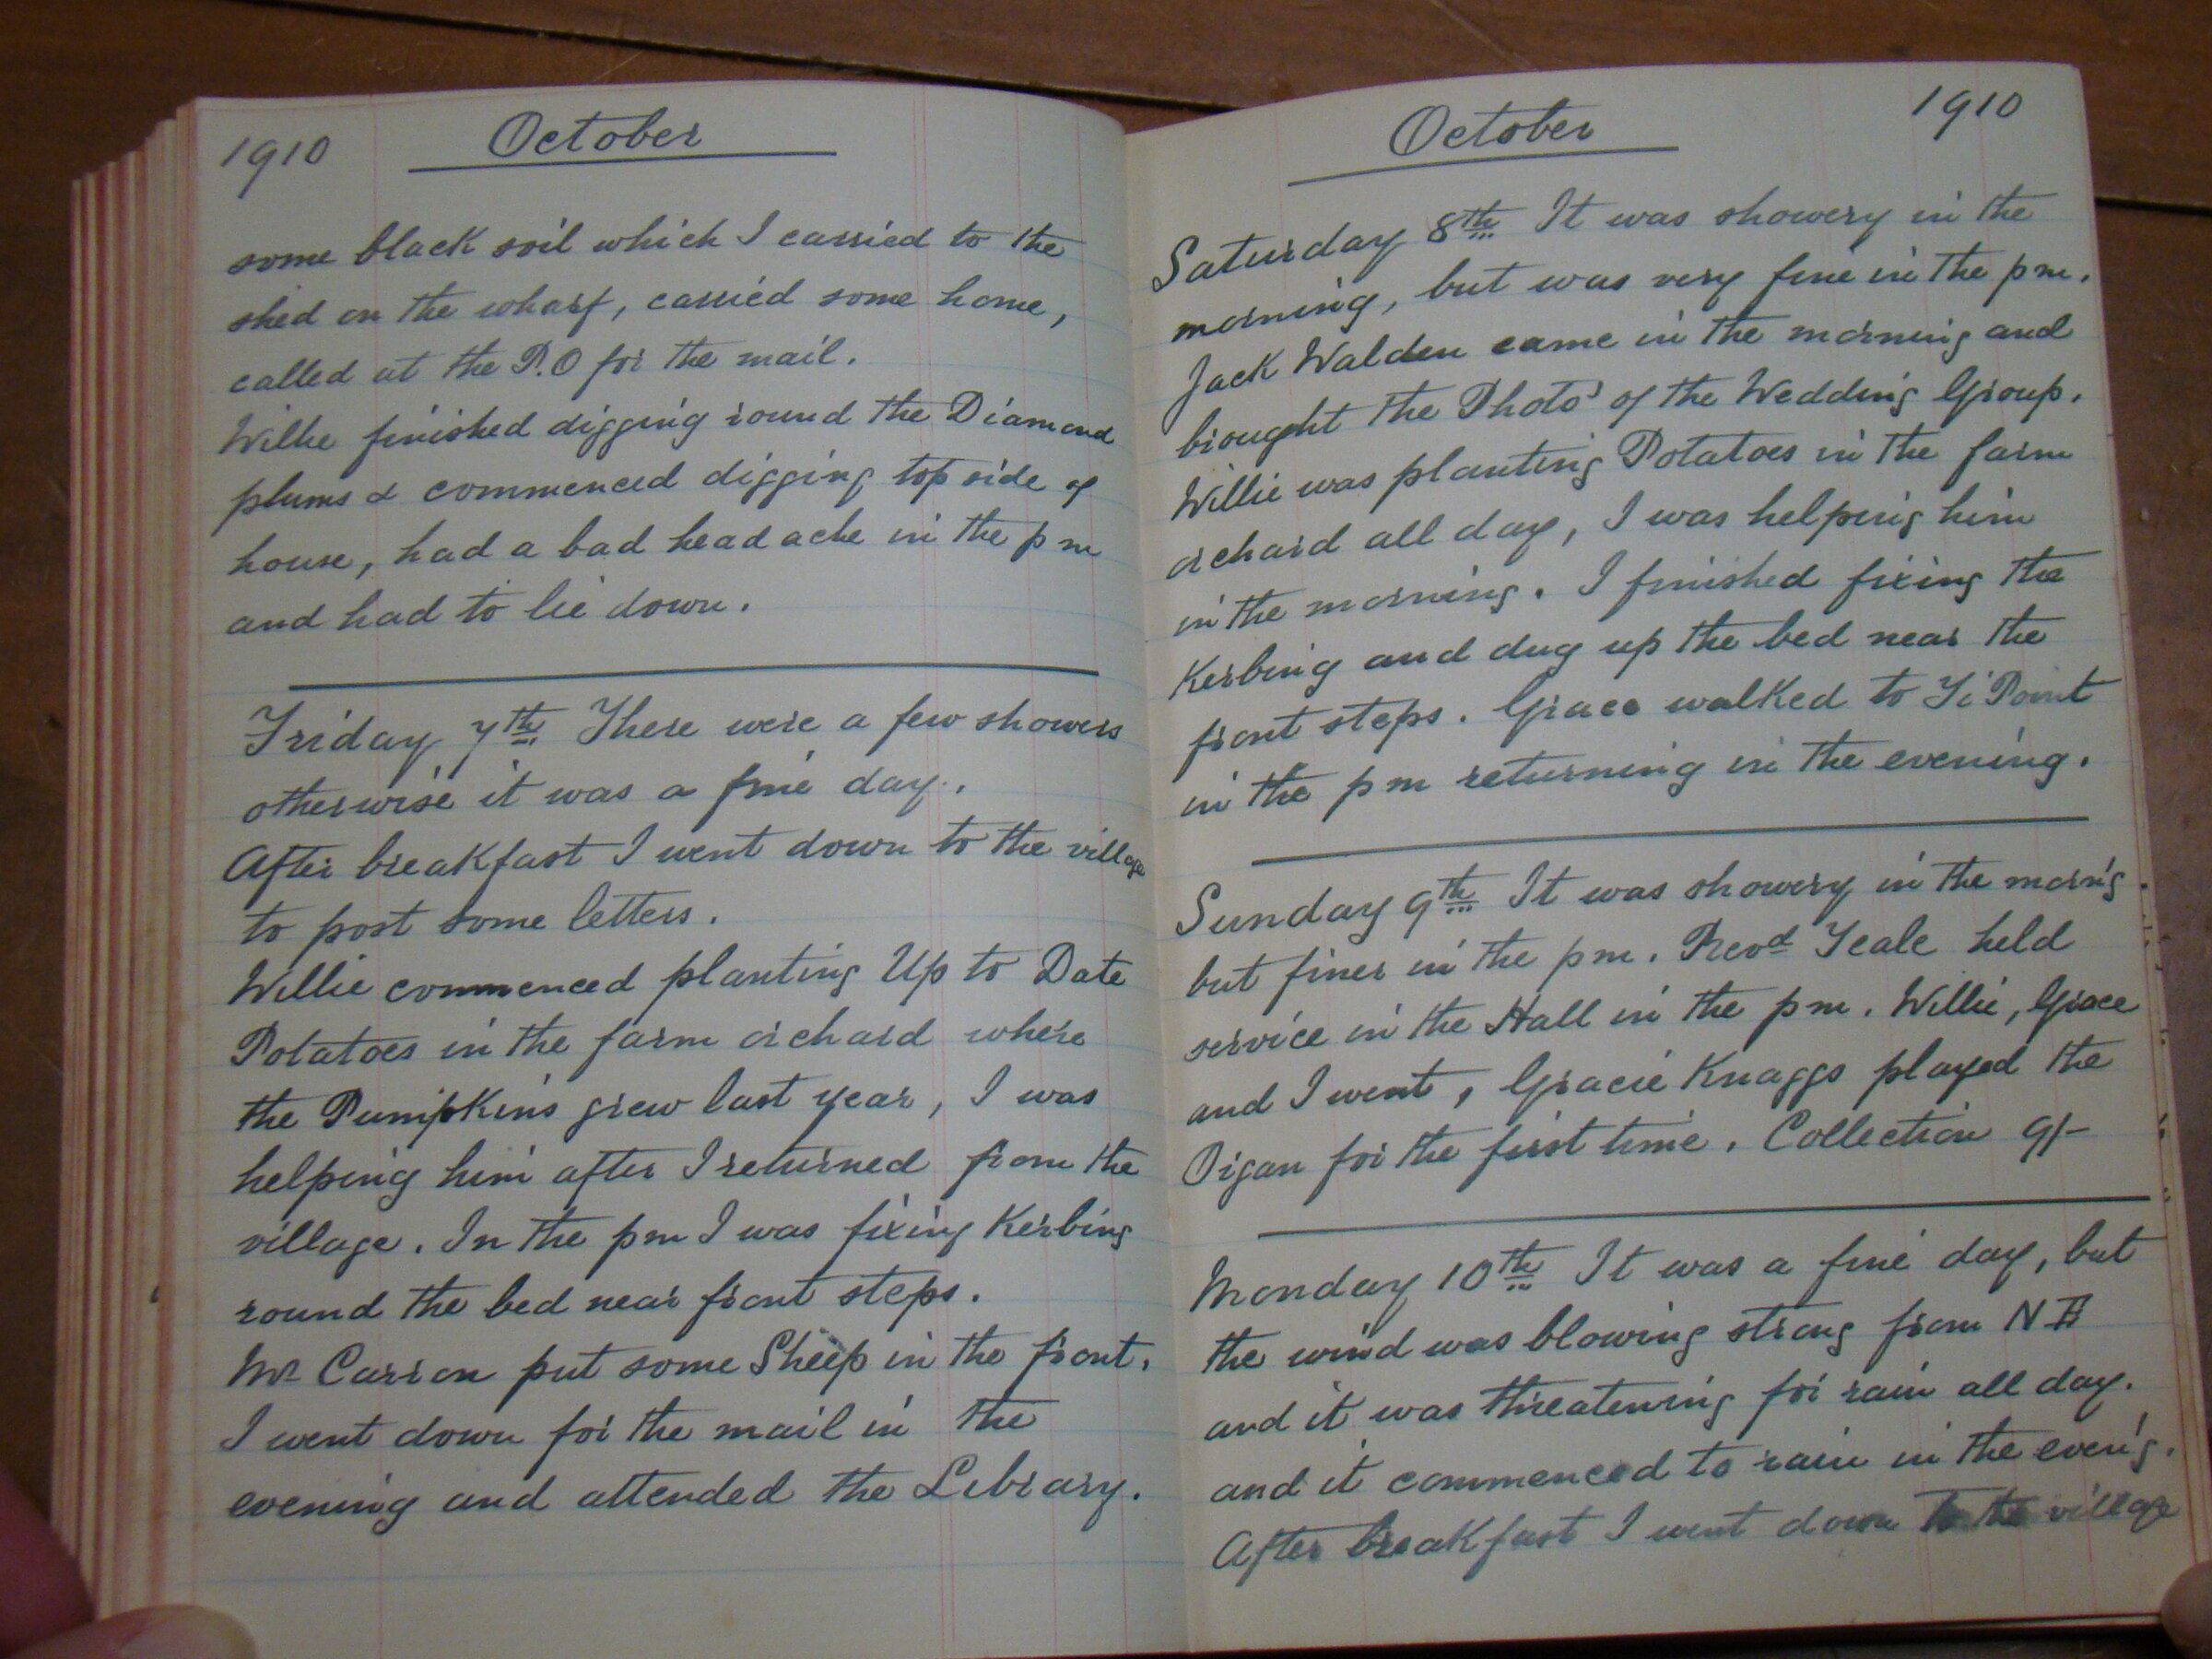 1910 October
some black soil which I carried to the
shed on the wharf, carried some home,
called at the P.O for the mail.
Willie finished digging round the Diamond
plums & commenced digging top side of
house, had a bad head ache in the pm
and had to lie down.
Friday 7th There were a few showers
otherwise it was a fine day.
After breakfast I went down to the village
to post some letters.
Willie commenced planting Up to Date
Potatoes in the farm orchard where
the Pumpkins grew last year, I was
helping him after I returned from the
village. In the pm I was fixing Kerbing
round the bed near front steps.
Mr Carron put some Sheep in the front.
I went down for the mail in the
evening and attended the Library.
October 1910
Saturday 8th It was showery in the
morning, but was very fine in the pm.
Jack Walden came in the morning and
brought the Photo' of the Wedding Group.
Willie was planting Potatoes in the farm
orchard all day, I was helping him
in the morning. I finished fixing the
Kerbing and dug up the bed near the
front steps. Grace walked to Ti Point
in the pm returning in the evening.
Sunday 9th It was showery in the morn'g
but finer in the pm. Revd Yeale held
service in the Hall in the pm. Willie, Grace
and I went, Gracie Knaggs played the
Organ for the first time. Collection 9/-
Monday 10th It was a fine day, but
the wind was blowing strong from NE
and it was threatening for rain all day.
and it commenced to rain in the even'g.
After breakfast I went down to the village